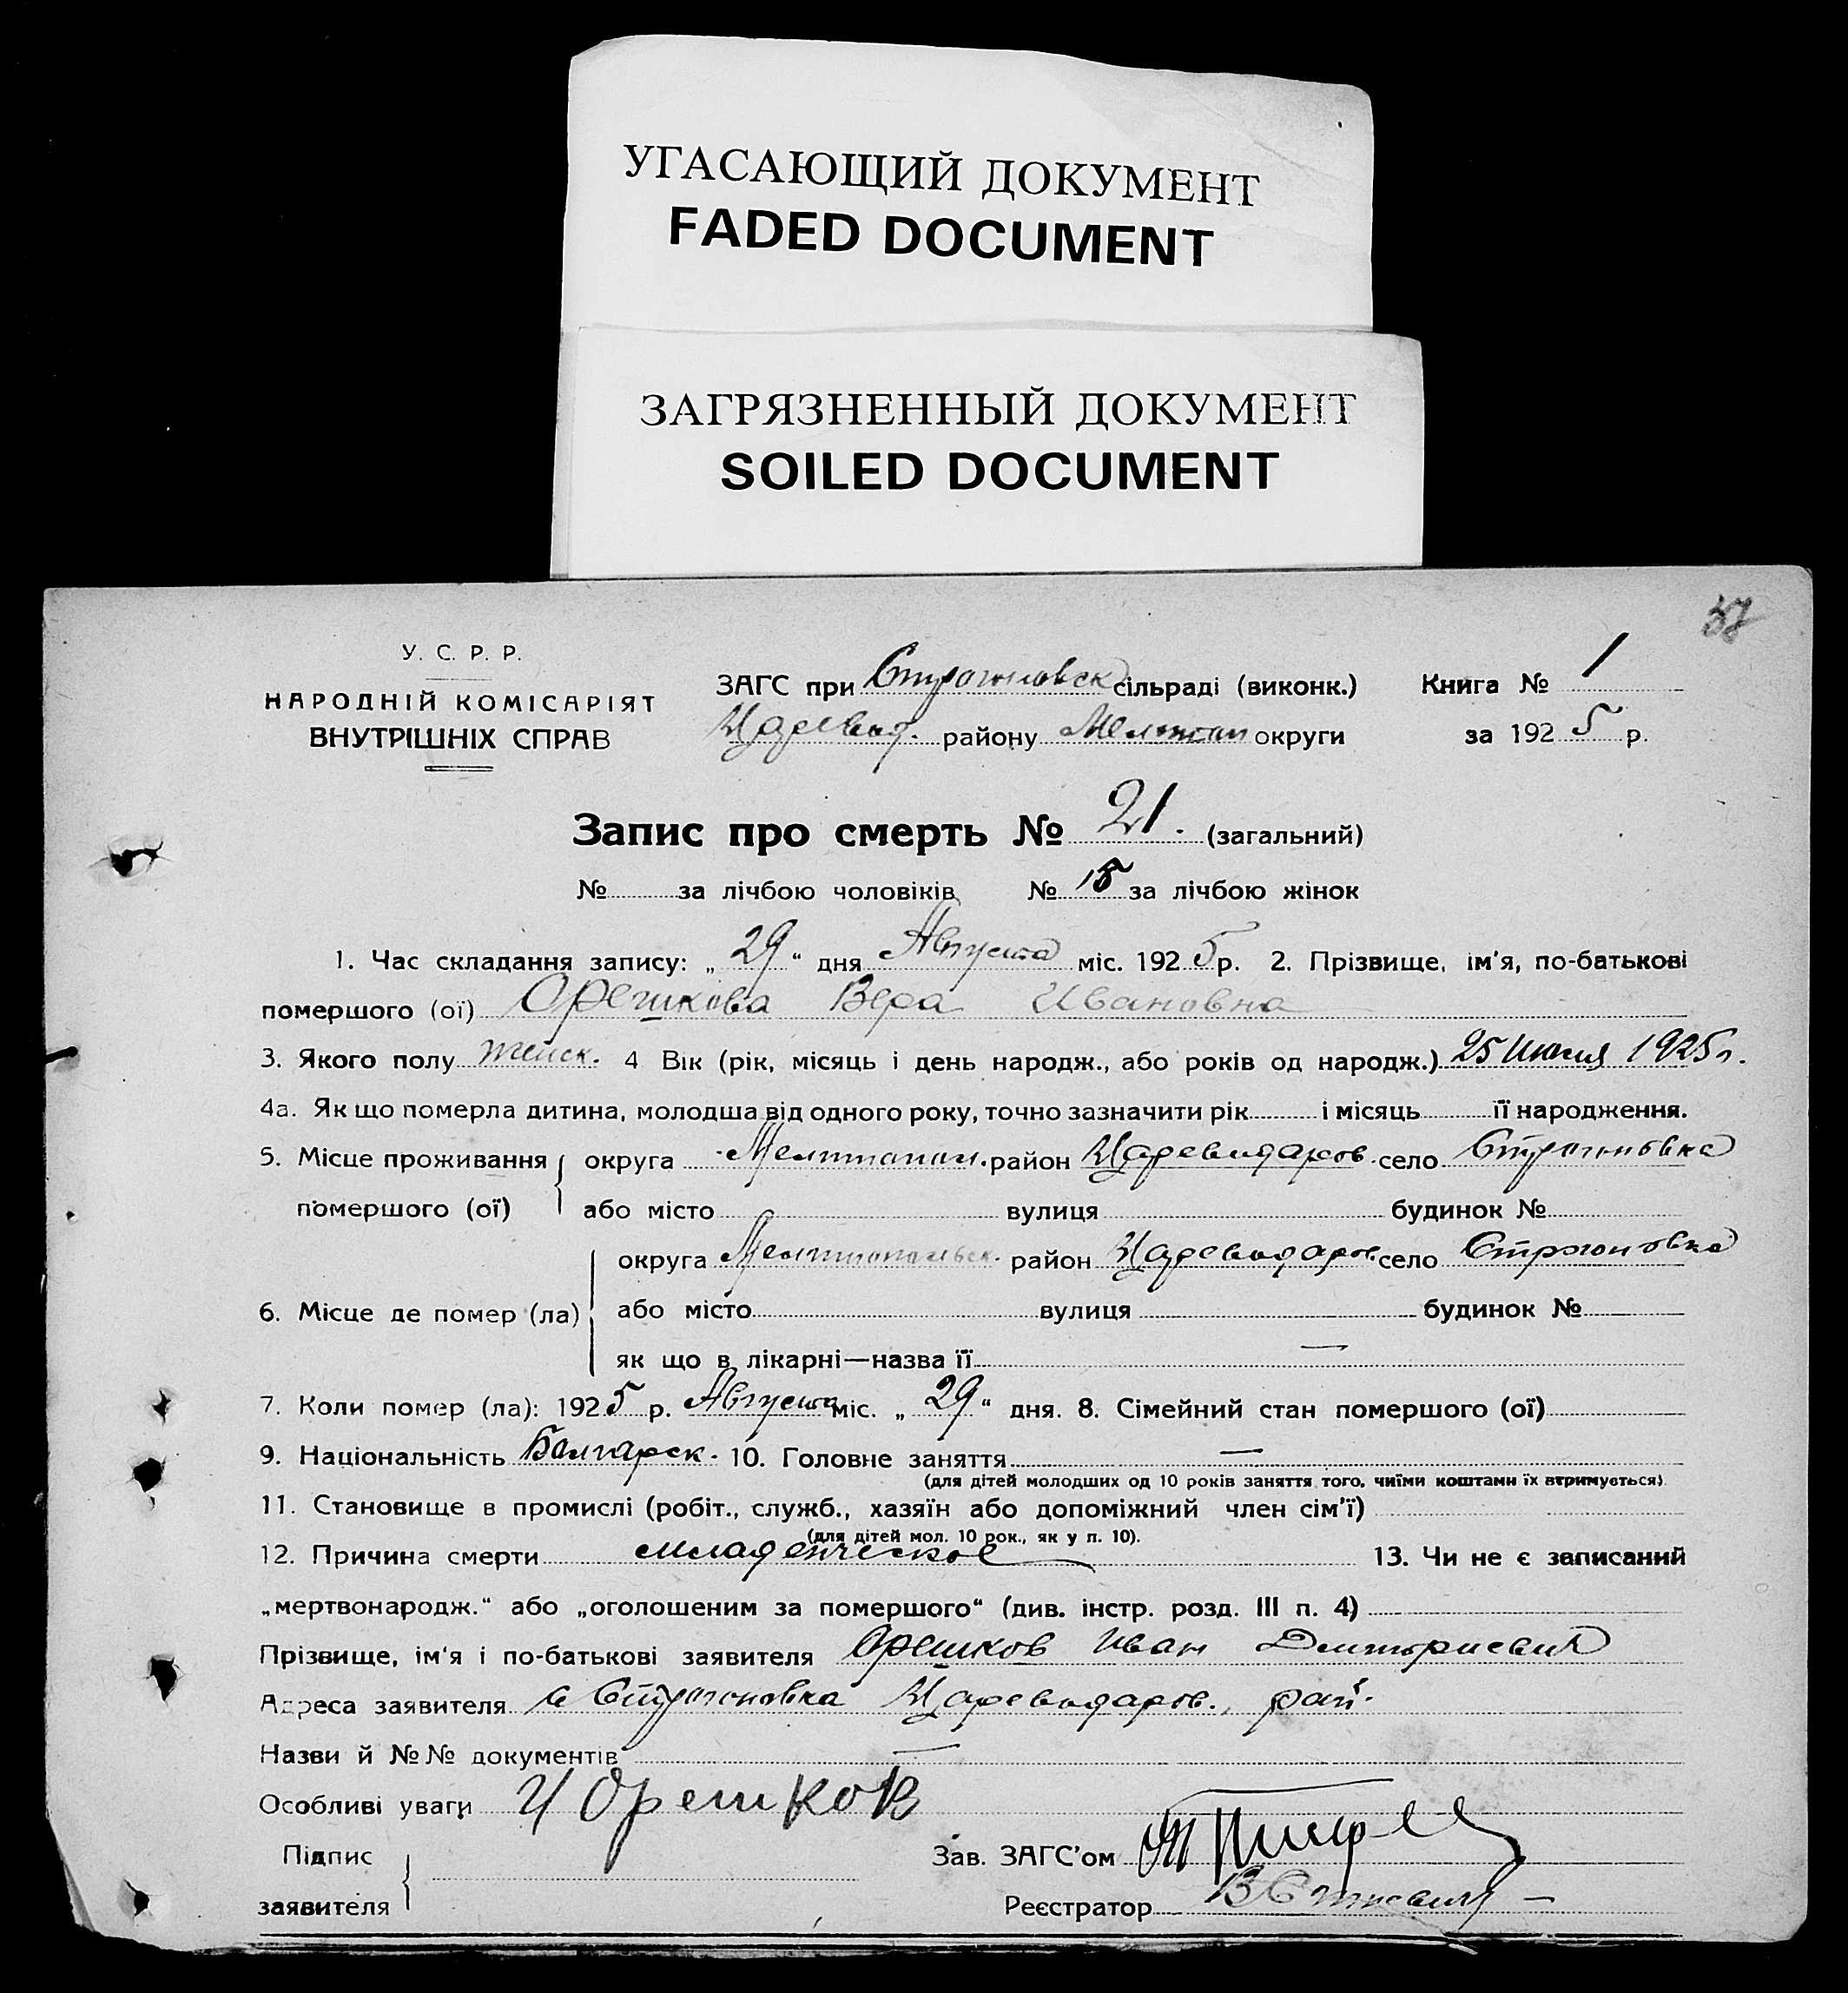 УГАСАЮЩИЙ ДОКУМЕНТ
FADED DOCUMENT
ЗАГРЯЗНЕННЫЙ ДОКУМЕНТ
SOILED DOCUMENT
37
У. С. Р. Р.
НАРОДНІЙ КОМІСАРІЯТ
ВНУТРІШНІХ СПРАВ
ЗАГС при Строгоновск сільраді (виконк.) Книга № 1
Царевод. району Мелитоп округи за 1925 р.
Запис про смерть № 21. (загальний)
№ за лічбою чоловіків № 15 за лічбою жінок
1. Час складання запису: „29“ дня Августа міс. 1925 р. 2. Прізвище, ім'я, по-батькові
помершого (ої) Орешкова Вера Ивановна
3. Якого полу женск. 4 Вік (рік, місяць і день народж., або років од народж.) 25 Июля 1925 г.
4а. Як що померла дитина, молодша від одного року, точно зазначити рік і місяць її народження.
5. Місце проживання округа Мелитопол. район Цареводаров. село Строгоновка
помершого (ої) або місто вулиця будинок №
округа Мелитопольск. район Цареводаров. село Строгоновка
6. Місце де помер (ла) або місто вулиця будинок №
як що в лікарні—назва її —
7. Коли помер (ла): 1925 р. Августа міс. „29“ дня. 8. Сімейний стан помершого (ої)
9. Національність Болгарск. 10. Головне заняття —
(для дітей молодших од 10 років заняття того, чиїми коштами їх втримується).
11. Становище в промислі (робіт., служб., хазяїн або допоміжний член сім'ї)
(для дітей мол. 10 рок., як у п. 10).
12. Причина смерти младенческое 13. Чи не є записаний
„мертвонародж.“ або „оголошеним за помершого“ (див. інстр. розд. III п. 4)
Прізвище, ім'я і по-батькові заявителя Орешков Иван Дмитриевич
Адреса заявителя с Строгоновка Цареводаров. рай.
Назви й №№ документів —
Особливі уваги И Орешков
Підпис
заявителя
Зав. ЗАГС'ом
Реєстратор